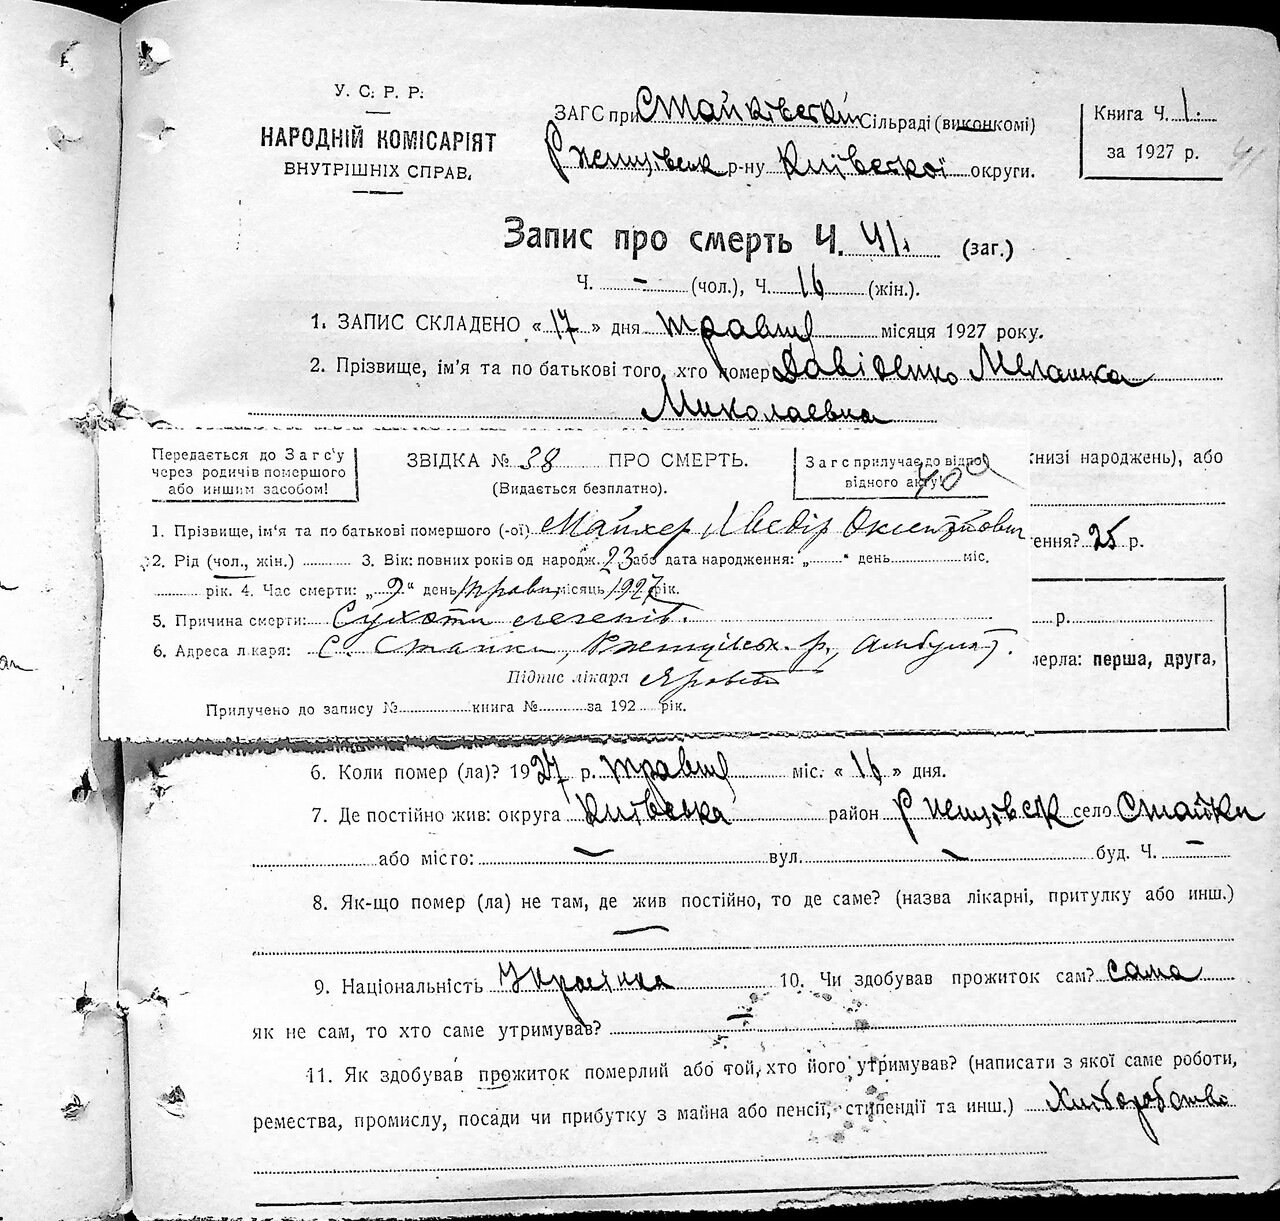 У. С. Р. Р.
НАРОДНІЙ КОМІСАРІЯТ
ВНУТРІШНІХ СПРАВ.
ЗАГС при Стайківській Сільраді (виконкомі)
Ржищівськ р-ну Київської округи.
Книга Ч. 1.
за 1927 р.
41
Запис про смерть Ч. 41 (заг.)
Ч. - (чол.), Ч. 16 (жін.).
1. ЗАПИС СКЛАДЕНО «17» дня травня місяця 1927 року.
2. Прізвище, ім'я та по батькові того, хто помер Давіденко Мелашка
Миколаевна
книзі народжень), або
ення? 25 р.
р.
мерла: перша, друга,
Передається до Загс'у
через родичів помершого
або иншим засобом!
ЗВІДКА № 38 ПРО СМЕРТЬ.
(Видається безплатно).
Загс прилучає до відпо-
відного акту!
40
1. Прізвище, ім'я та по батькові помершого (-ої)
2. Рід (чол., жін.) 3. Вік: повних років од народж. 23 або дата народження: „ “ день міс.
рік. 4. Час смерти: „9“ день травня місяць 1927 рік.
5. Причина смерти: Сухоти легенів.
6. Адреса лікаря: С. Стайки, Ржищівськ. р., амбулят.
Підпис лікаря
Прилучено до запису № книга № за 192 рік.
6. Коли помер (ла)? 1927 р. травня міс. «16» дня.
7. Де постійно жив: округа Київська район Ржищівськ село Стайки
або місто: — вул. — буд. Ч. —
8. Як-що помер (ла) не там, де жив постійно, то де саме? (назва лікарні, притулку або инш.)
—
9. Національність Украінка 10. Чи здобував прожиток сам? сама
як не сам, то хто саме утримував? —
11. Як здобував прожиток померлий або той, хто його утримував? (написати з якої саме роботи,
ремества, промислу, посади чи прибутку з майна або пенсії, стипендії та инш.) Хліборобство